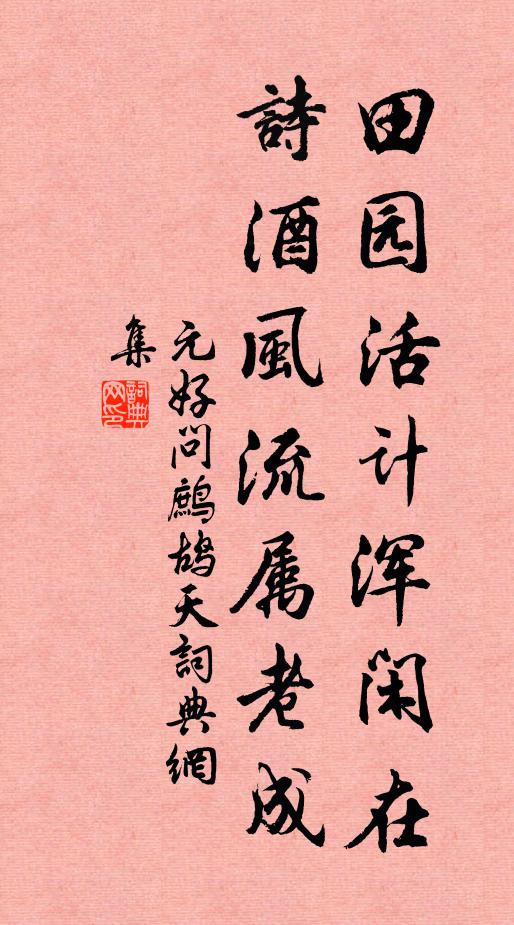 田园活计浑闲在
詩酒風流属老成
元好问鷓鸪天詞典網
集
詞典
网印